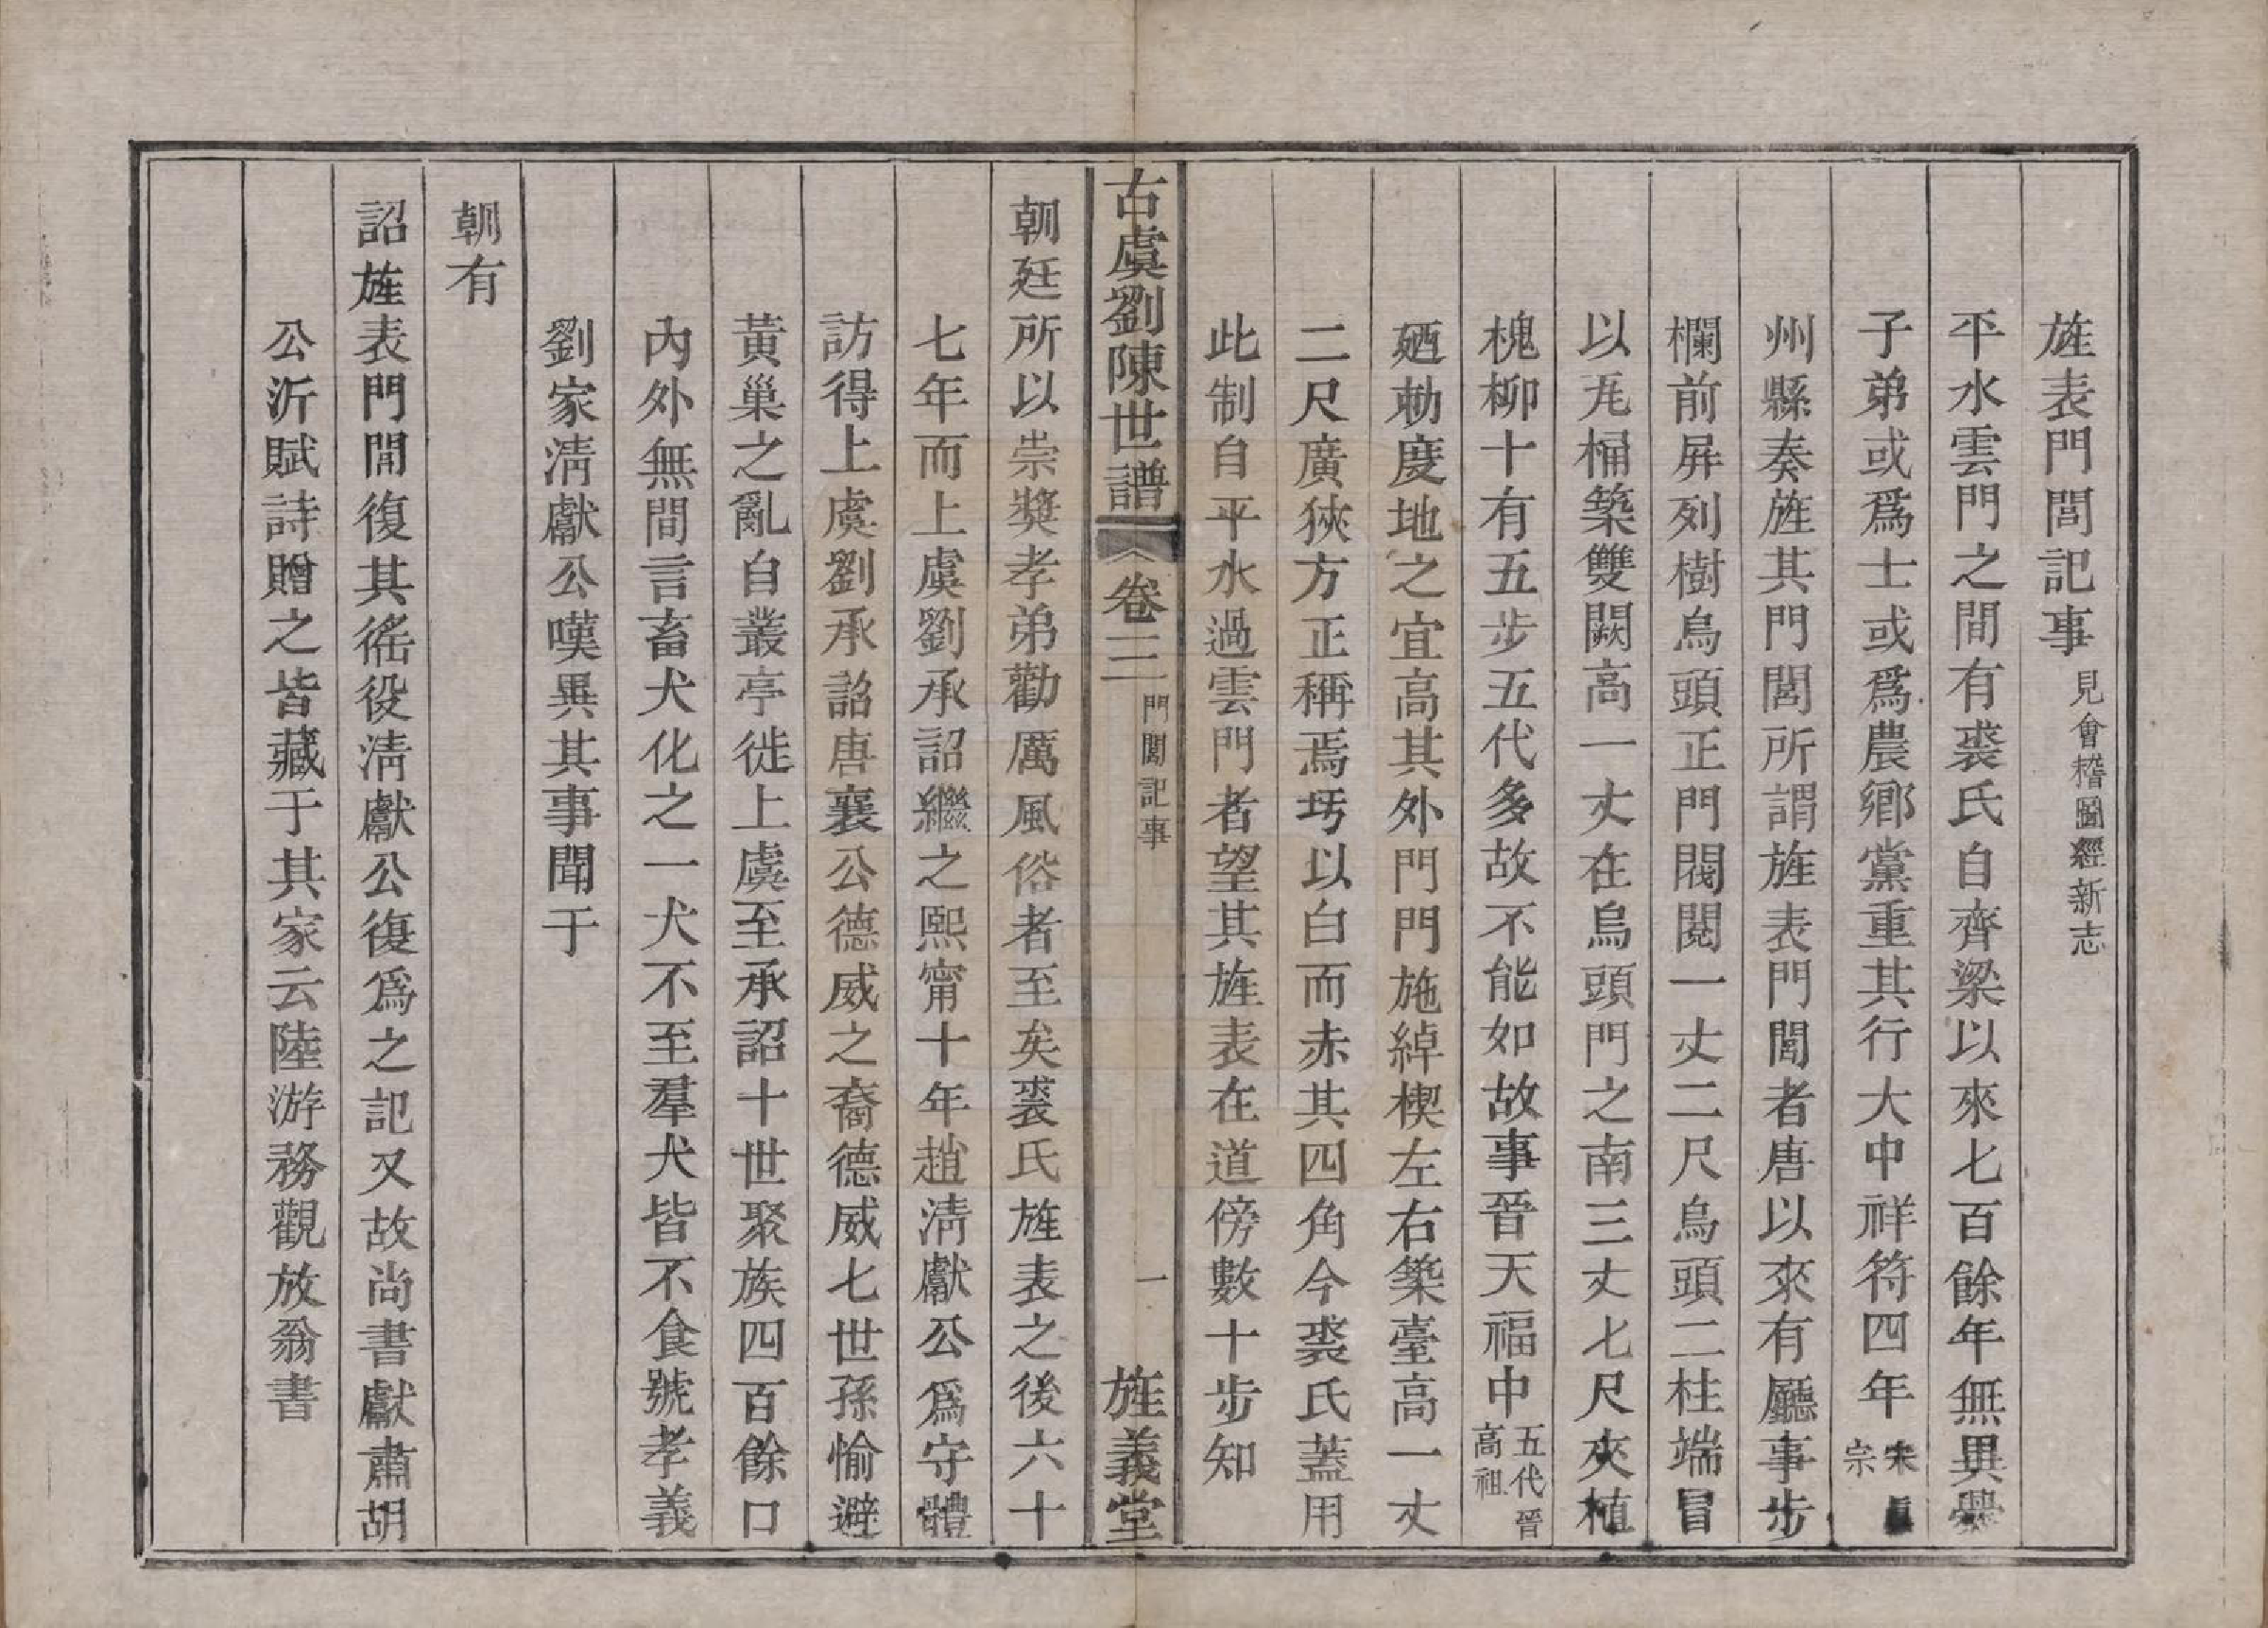 旌表門閭記事 見會稽圖經新志
平水雲門之間有裘氏自齊梁以來七百餘年無異爨
子弟或爲士或爲農鄉黨重其行大中祥符四年 宋眞宗
州縣奏旌其門閭所謂旌表門閭者唐以來有廳事步
欄前屛列樹烏頭正門閥閱一丈二尺烏頭二柱端冒
以瓦桶築雙闕高一丈在烏頭門之南三丈七尺夾植
槐柳十有五步五代多故不能如故事晉天福中 五代晉高祖
廼勑度地之宜高其外門門施綽楔左右築臺高一丈
二尺廣狹方正稱焉圬以白而赤其四角今裘氏蓋用
此制自平水過雲門者望其旌表在道傍數十步知
古虞劉陳世譜 卷二 門閭記事 一 旌義堂
朝廷所以崇獎孝弟勸厲風俗者至矣裘氏旌表之後六十
七年而上虞劉承詔繼之熙甯十年趙淸獻公爲守體
訪得上虞劉承詔唐襄公德威之裔德威七世孫愉避
黃巢之亂自叢亭徙上虞至承詔十世聚族四百餘口
內外無間言畜犬化之一犬不至羣犬皆不食號孝義
劉家淸獻公嘆異其事聞于
朝有
詔旌表門閭復其徭役淸獻公復爲之記又故尚書獻肅胡
公沂賦詩贈之皆藏于其家云陸游務觀放翁書